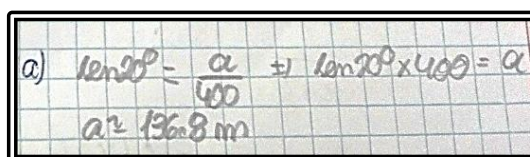 a) sen20° = a/400 ⇒ sen20° × 400 = a
a ≈ 136.8 m